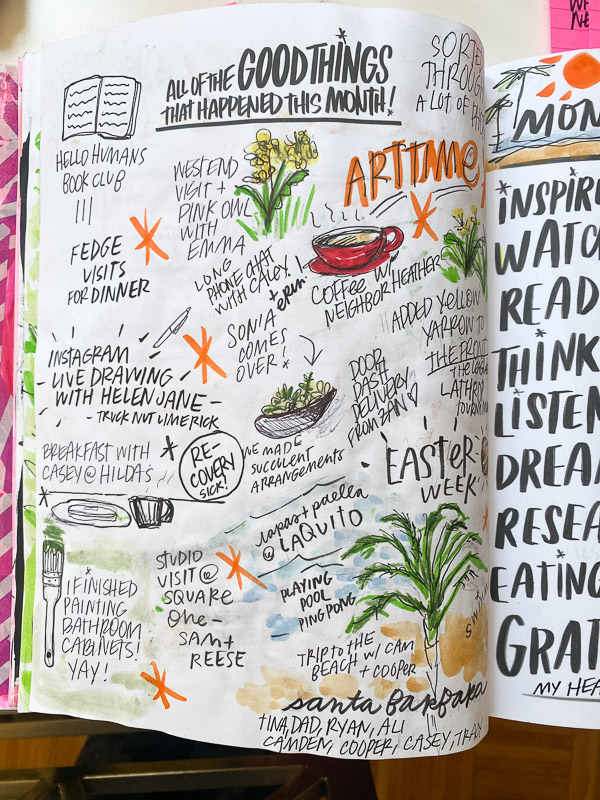 ALL OF THE GOOD THINGS
THAT HAPPENED THIS MONTH!
SORTED
THROUGH
A LOT OF
HELLO HUMANS
BOOK CLUB
WEST END
VISIT +
PINK OWL
WITH
EMMA
ART TIME
FEDGE
VISITS
FOR DINNER
LONG
PHONE CHAT
WITH CALEY
+ ERIN
COFFEE W/
NEIGHBOR HEATHER
ADDED YELLOW
YARROW TO
THE FRONT
INSTAGRAM
LIVE DRAWING
WITH HELEN JANE -
- TRUCK NUT LIMERICK
SONIA
COMES
OVER!
DOOR
DASH
DELIVERY
FROM
LATHROP
BREAKFAST WITH
CASEY @ HILDA'S
RE-
COVERY
SICK!
WE MADE
SUCCULENT
ARRANGEMENTS
EASTER
WEEK
TAPAS + PAELLA
@ LAQUITO
I FINISHED
PAINTING
BATHROOM
CABINETS!
YAY!
STUDIO
VISIT @
SQUARE
ONE -
SAM +
REESE
PLAYING
POOL
PING PONG
TRIP TO THE
BEACH W/ CAM
+ COOPER
SANTA BARBARA
TINA, DAD, RYAN, ALI
CAMDEN, COOPER, CASEY, TRACY
MON
INSPIR
WATC
READ
THINK
LISTEN
DREA
RESEA
EATING
GRAT
MY HEA